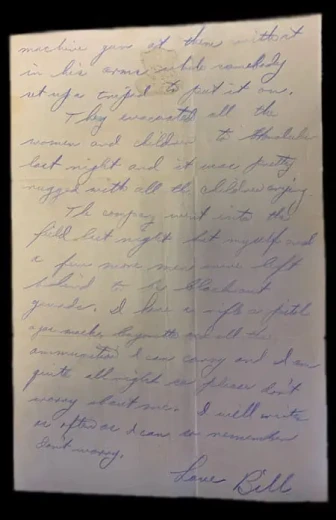 machine gun at them with it
in his arms while somebody
set up a tripod to put it on.
They evacuated all the
women and children to Honolulu
last night and it was pretty
rugged with all the children crying.
The company went into the
field last night but myself and
a few more men were left
behind to be blackout
guards. I have a rifle a pistol
a gas mask, bayonette and all the
ammunition I can carry and I am
quite allright so please don't
worry about me. I will write
as often as I can so remember
Don't worry.
Love Bill